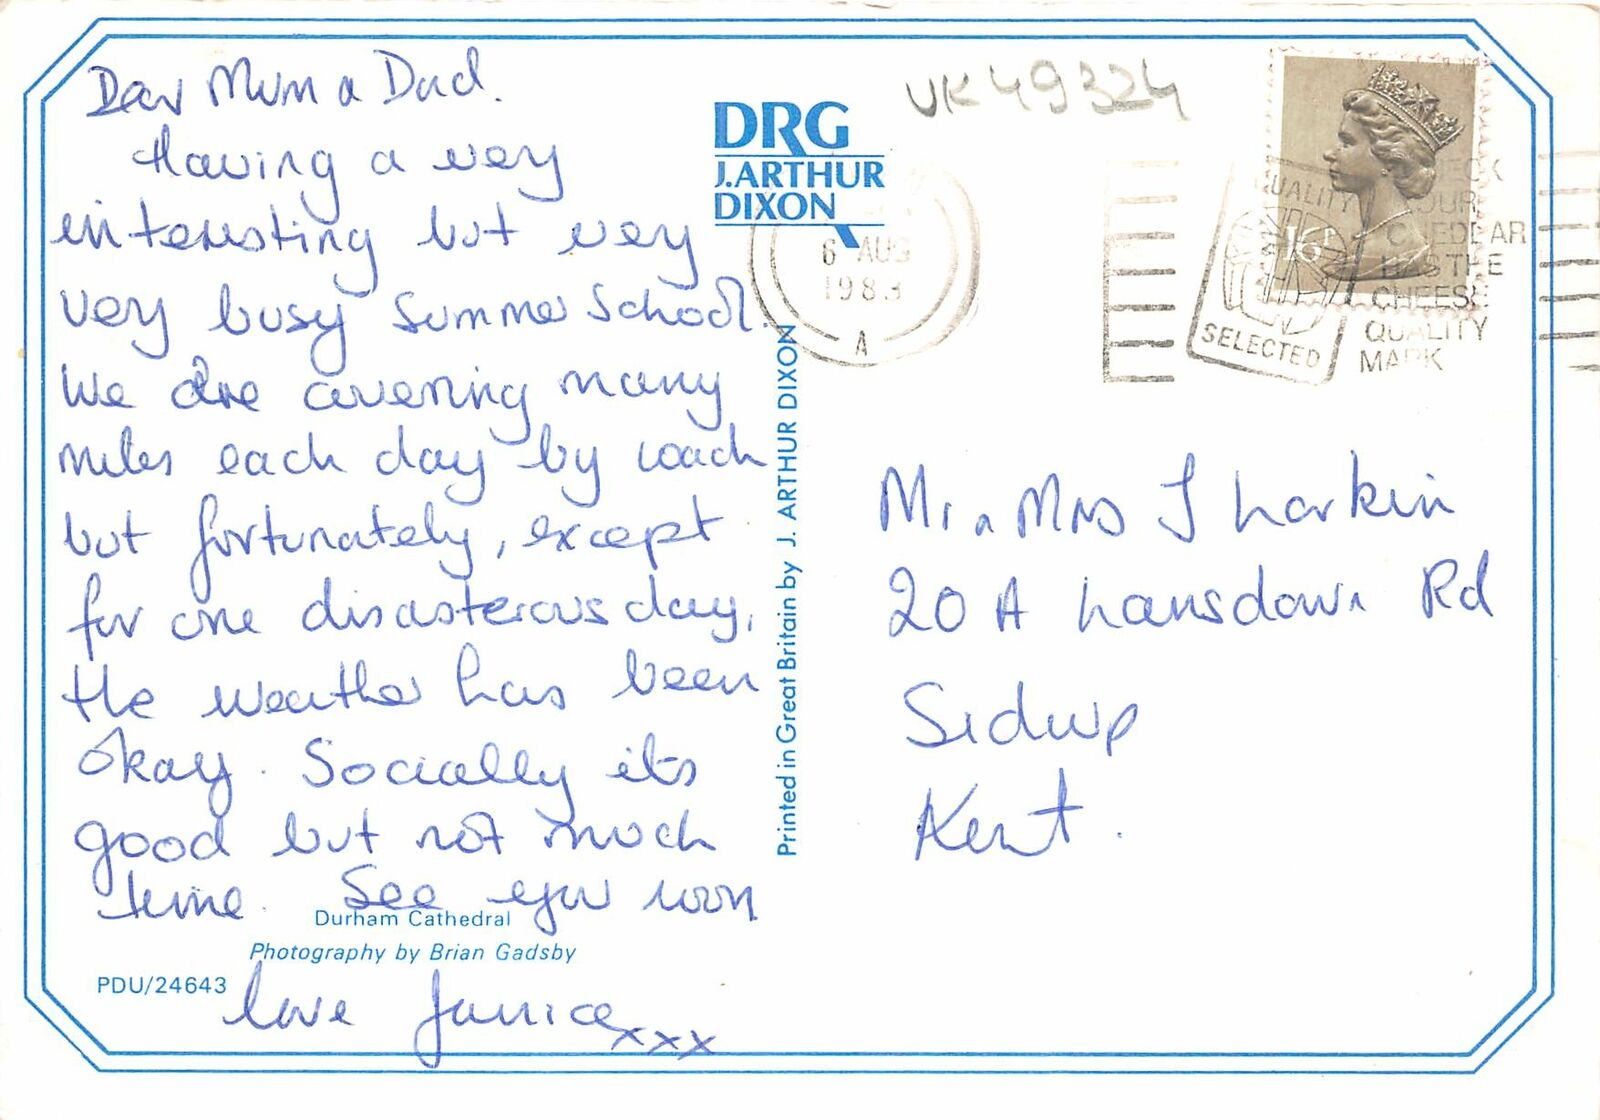 Dear Mum & Dad.
Having a very
interesting but very
very busy Summer School.
We are covering many
miles each day by coach
but fortunately, except
for one disasterous day,
the weather has been
okay. Socially its
good but not much
time. See you soon
love Janice xxx
Durham Cathedral
Photography by Brian Gadsby
PDU/24643
DRG
J.ARTHUR
DIXON
Printed in Great Britain by J. ARTHUR DIXON
UK49324
6 AUG
1983
A
16P
QUALITY
SELECTED
CHECK
YOUR
CHEDDAR
HAS THE
CHEESE
QUALITY
MARK
Mr & Mrs J Larkin
20A Lansdown Rd
Sidcup
Kent.